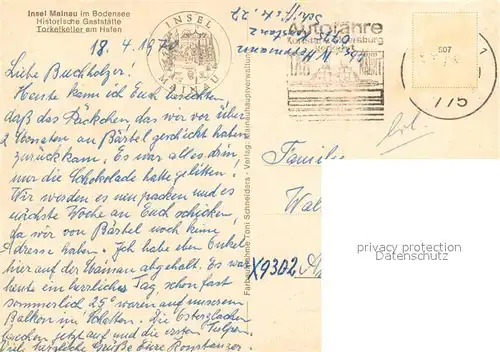 Insel Mainau im Bodensee
Historische Gaststätte
Torkelkeller am Hafen
18. 4. 1970
Liebe Buchholzer!
Heute kann ich Euch berichten
daß das Päckchen das wir vor über
2 Monaten an Bärtel geschickt haben
zurückkam. Es war alles drin,
nur die Schokolade hatte gelitten.
Wir werden es neu packen und es
nächste Woche an Euch schicken,
da wir von Bärtel noch keine
Adresse haben. Ich habe eben Enkel
hier auf der Mainau abgeholt. Es war
heute ein herrlicher Tag, schon fast
sommerlich 25° waren auf unserem
Balkon im Schatten. Die Osterglocken
brechen jetzt auf und die ersten Tulpen.
Viele herzliche Grüße Eure Konstanzer.
INSEL
MAINAU
Farbaufnahme Toni Schneiders - Verlag: Mainauhauptverwaltung
Abs. W. Herrmann
Konstanz
Schiffstr. 27
Autofähre
507
775
Familie
X9302
privacy protection
watermark